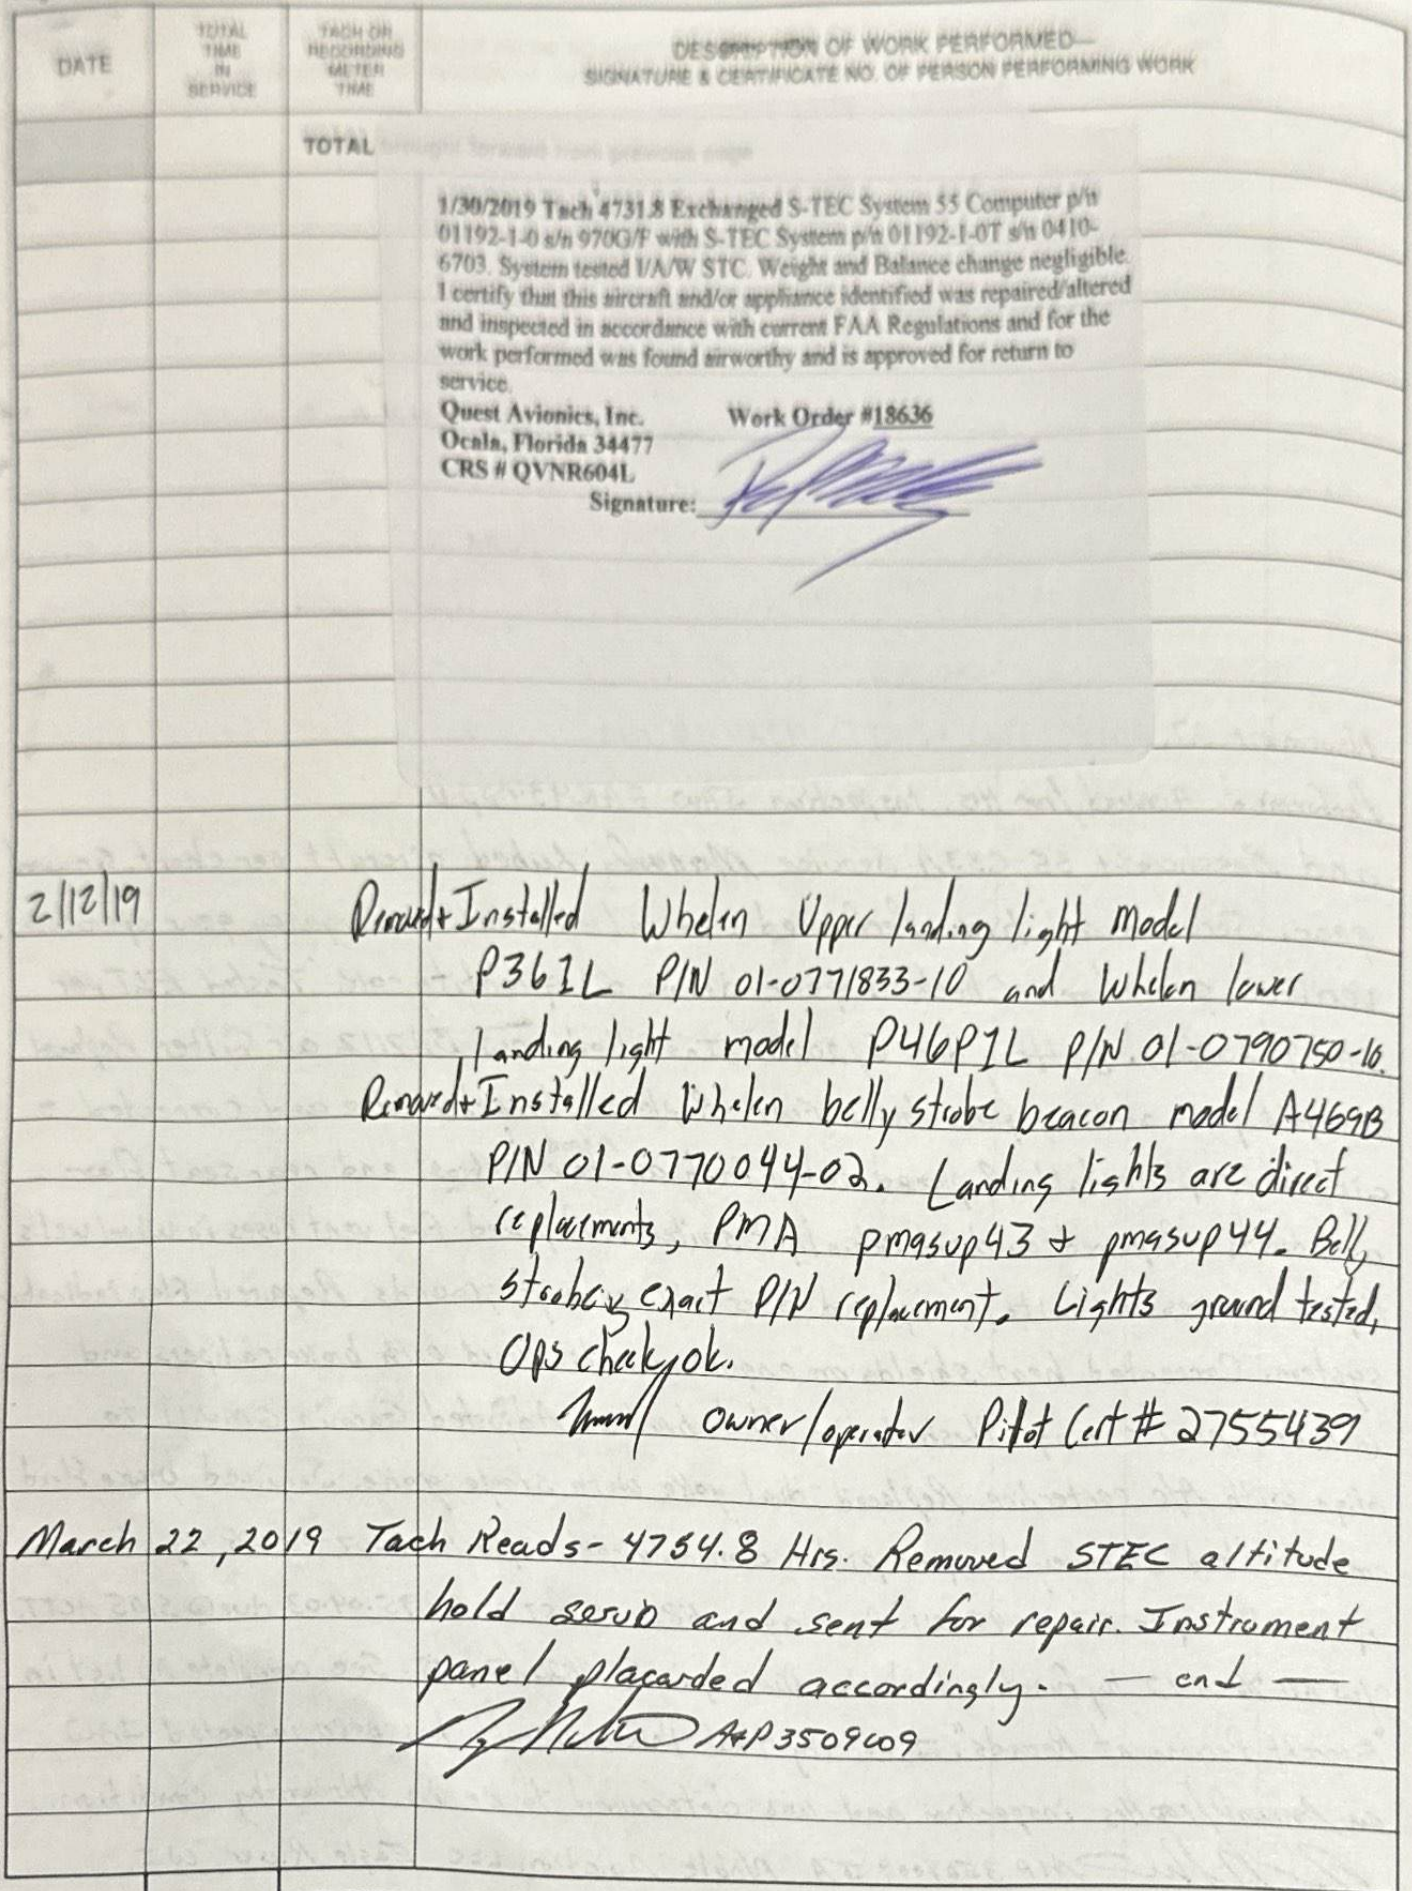 DATE
TOTAL TIME IN SERVICE
TACH OR RECORDING METER TIME
DESCRIPTION OF WORK PERFORMED—
SIGNATURE & CERTIFICATE NO. OF PERSON PERFORMING WORK
TOTAL brought forward from previous page
1/30/2019 Tach 4731.8 Exchanged S-TEC System 55 Computer p/n
01192-1-0 s/n 970G/F with S-TEC System p/n 01192-1-0T s/n 0410-
6703. System tested I/A/W STC. Weight and Balance change negligible.
I certify that this aircraft and/or appliance identified was repaired/altered
and inspected in accordance with current FAA Regulations and for the
work performed was found airworthy and is approved for return to
service.
Quest Avionics, Inc. Work Order #18636
Ocala, Florida 34477
CRS # QVNR604L
Signature:
2/12/19 Removed + Installed Whelen Upper landing light Model
P361L P/N 01-0771833-10 and Whelen lower
landing light model P46P1L P/N 01-0790750-10.
Removed + Installed Whelen belly strobe beacon model A469B
P/N 01-0770044-02. Landing lights are direct
replacements, PMA pmasup43 + pmasup44. Belly
strobe is exact P/N replacement. Lights ground tested,
Ops check ok.
owner/operator Pilot Cert # 2755439
March 22, 2019 Tach Reads- 4754.8 Hrs. Removed STEC altitude
hold servo and sent for repair. Instrument
panel placarded accordingly. — end —
A+P 3509609